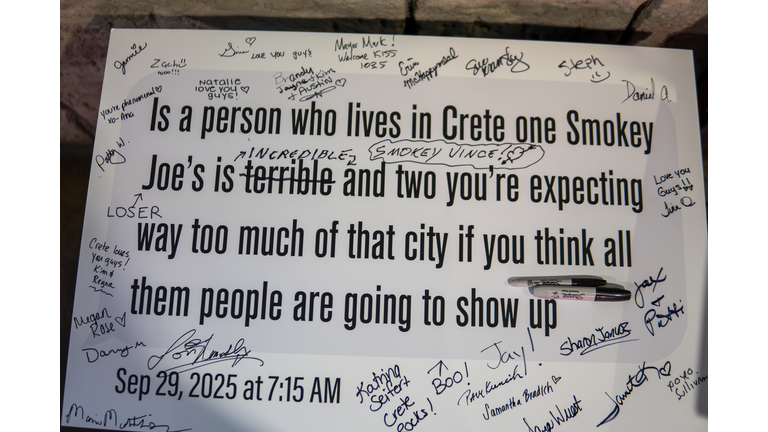 Jammie
Zach!!
woo!!!
love you guys
Mayor Mark!
Welcome KISS
103.5
Steph
Daniel A.
NATALIE
love you
guys!
Brandy
Jayne + Kim
+ AUSTIN
you're phenomenal
xo-Ana
Patty W.
Is a person who lives in Crete one Smokey
INCREDIBLE
SMOKEY VINCE!
Joe's is terrible and two you're expecting
LOSER
Love you
Guys!!
way too much of that city if you think all
Crete loves
you guys!
Kim &
them people are going to show up
Megan
Rose
Danny M
Jax
+
Patti
Sep 29, 2025 at 7:15 AM
Katrina
Seifert
Crete
Rocks!
BOO!
Jay!
Samantha Bradich
Sharon Janous
XOXO
Sullivan